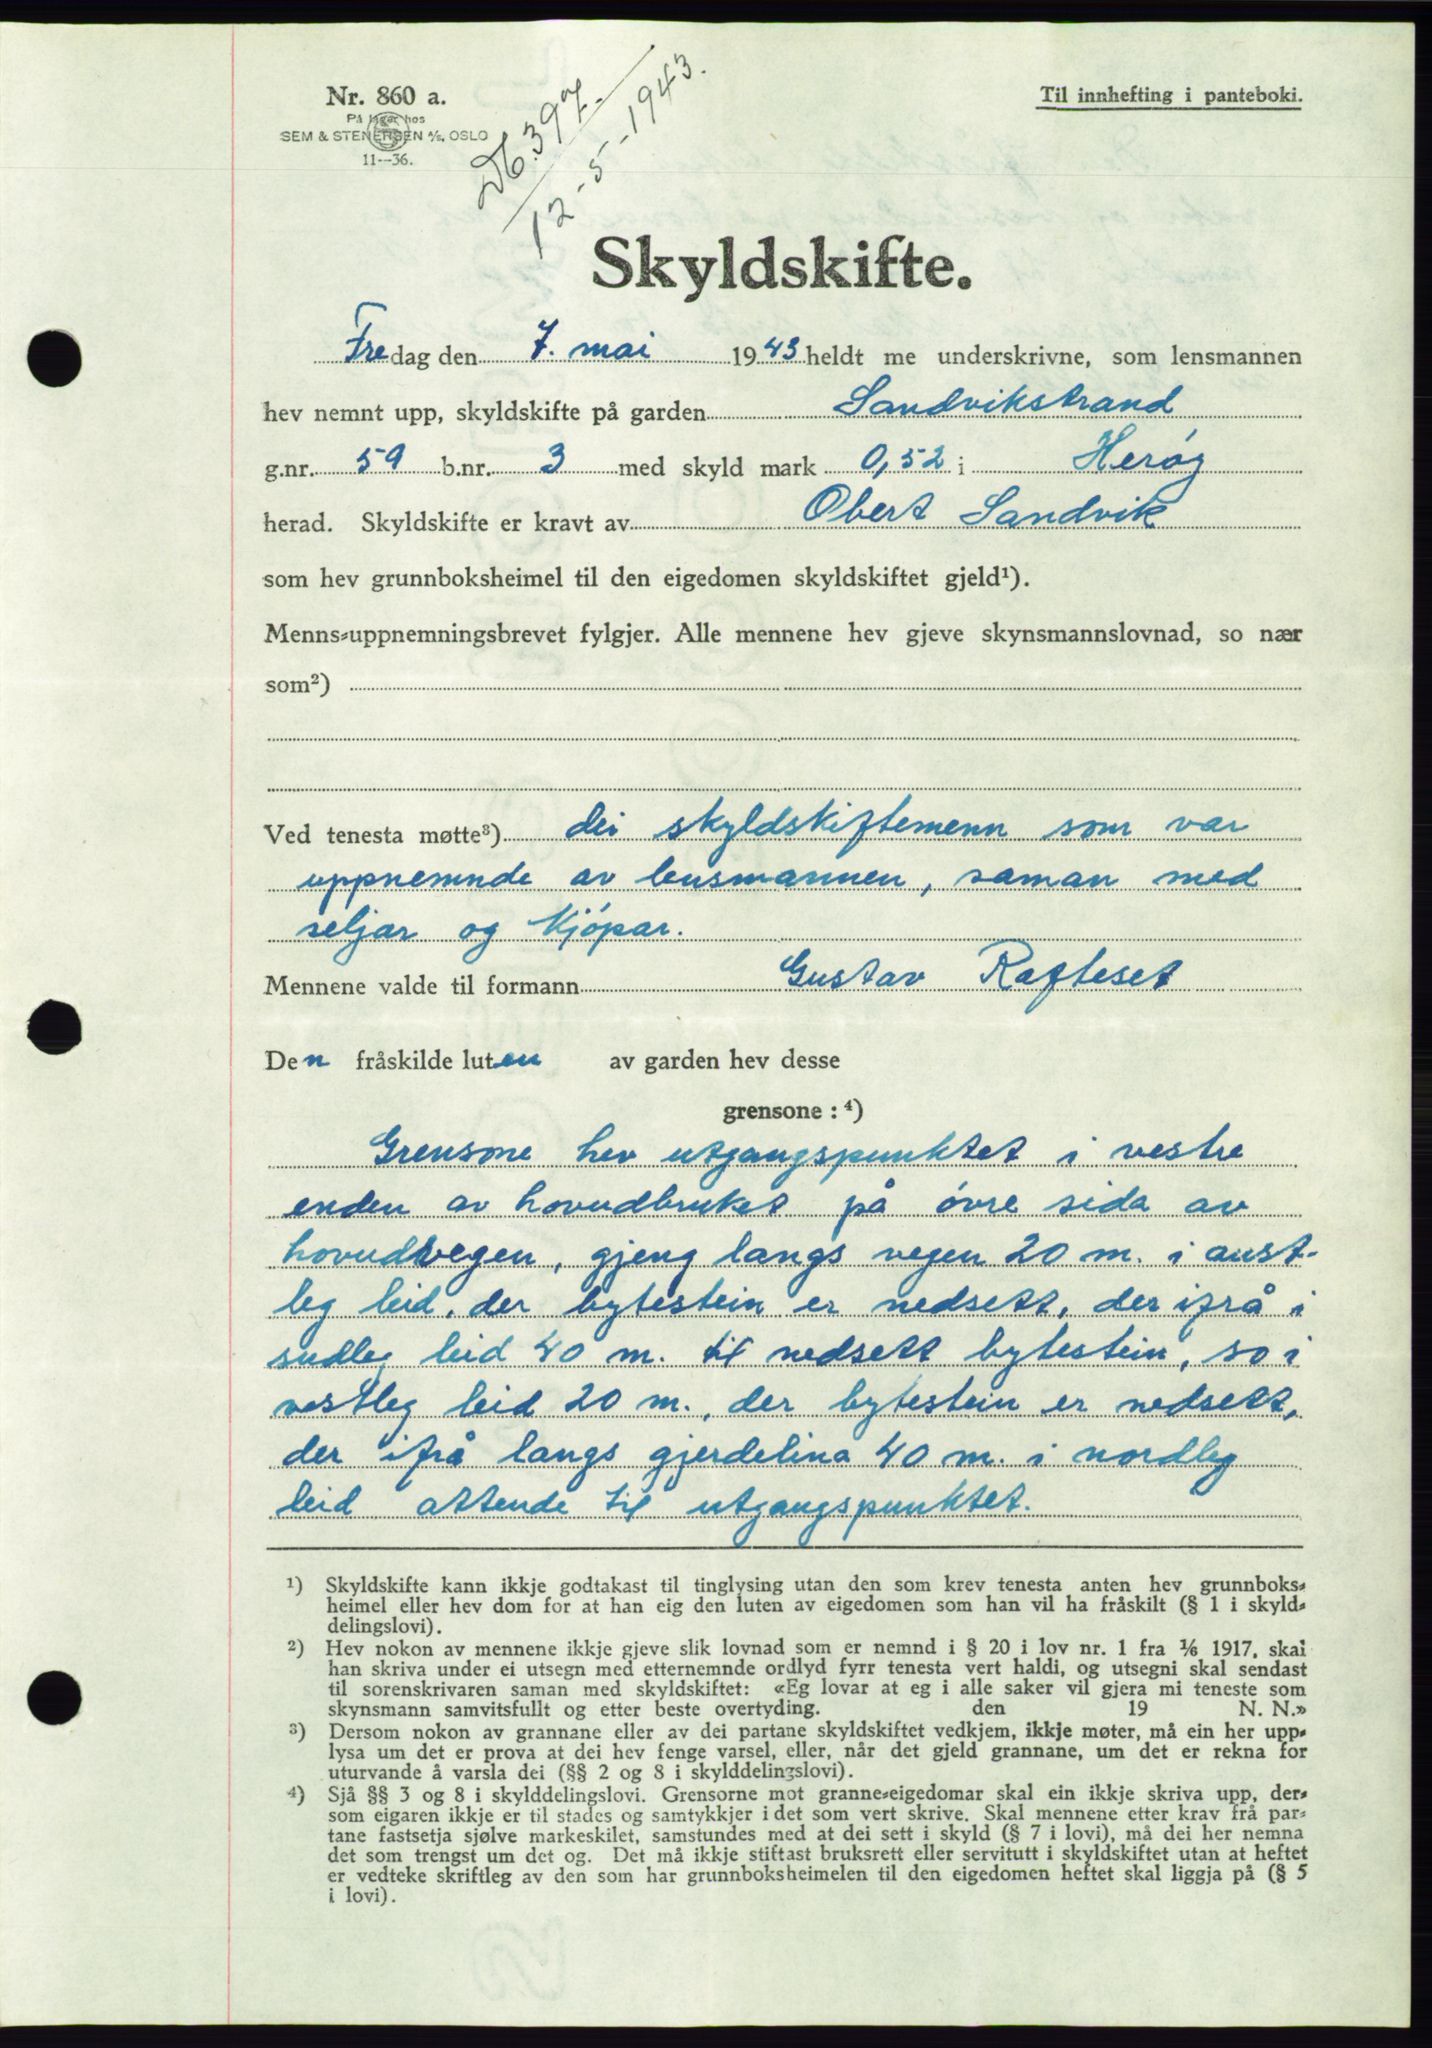 Nr. 860 a.
På lager hos
SEM & STENERSEN A/S, OSLO
11—36.
Db. 397.
12-5-1943.
Til innhefting i panteboki.
Skyldskifte.
Fredag den 7. mai 1943 heldt me underskrivne, som lensmannen
hev nemnt upp, skyldskifte på garden Sandvikstrand
g.nr. 59 b.nr. 3 med skyld mark 0,52 i Herøy
herad. Skyldskifte er kravt av Obert Sandvik
som hev grunnboksheimel til den eigedomen skyldskiftet gjeld¹).
Menns-uppnemningsbrevet fylgjer. Alle mennene hev gjeve skynsmannslovnad, so nær
som²)
Ved tenesta møtte³) dei skyldskiftemenn som var
uppnemnde av lensmannen, saman med
seljar og kjöpar.
Mennene valde til formann Gustav Rafteset
Den fråskilde luten av garden hev desse
grensone : ⁴)
Grensone hev utgangspunktet i vestre
enden av hovudbruket på övre sida av
hovudvegen, gjeng langs vegen 20 m. i aust-
leg leid, der bytestein er nedsett, der ifrå i
sudleg leid 40 m. til nedsett bytestein, so i
vestleg leid 20 m., der bytestein er nedsett,
der ifrå langs gjerdelina 40 m. i nordleg
leid attende til utgangspunktet.
¹) Skyldskifte kann ikkje godtakast til tinglysing utan den som krev tenesta anten hev grunnboks-
heimel eller hev dom for at han eig den luten av eigedomen som han vil ha fråskilt (§ 1 i skyld-
delingslovi).
²) Hev nokon av mennene ikkje gjeve slik lovnad som er nemnd i § 20 i lov nr. 1 fra ⅙ 1917, skal
han skriva under ei utsegn med etternemnde ordlyd fyrr tenesta vert haldi, og utsegni skal sendast
til sorenskrivaren saman med skyldskiftet: «Eg lovar at eg i alle saker vil gjera mi teneste som
skynsmann samvitsfullt og etter beste overtyding. den 19 N. N.»
³) Dersom nokon av grannane eller av dei partane skyldskiftet vedkjem, ikkje møter, må ein her upp-
lysa um det er prova at dei hev fenge varsel, eller, når det gjeld grannane, um det er rekna for
uturvande å varsla dei (§§ 2 og 8 i skylddelingslovi).
⁴) Sjå §§ 3 og 8 i skylddelingslovi. Grensorne mot granne-eigedomar skal ein ikkje skriva upp, der-
som eigaren ikkje er til stades og samtykkjer i det som vert skrive. Skal mennene etter krav frå par-
tane fastsetja sjølve markeskilet, samstundes med at dei sett i skyld (§ 7 i lovi), må dei her nemna
det som trengst um det og. Det må ikkje stiftast bruksrett eller servitutt i skyldskiftet utan at heftet
er vedteke skriftleg av den som har grunnboksheimelen til den eigedomen heftet skal liggja på (§ 5
i lovi).